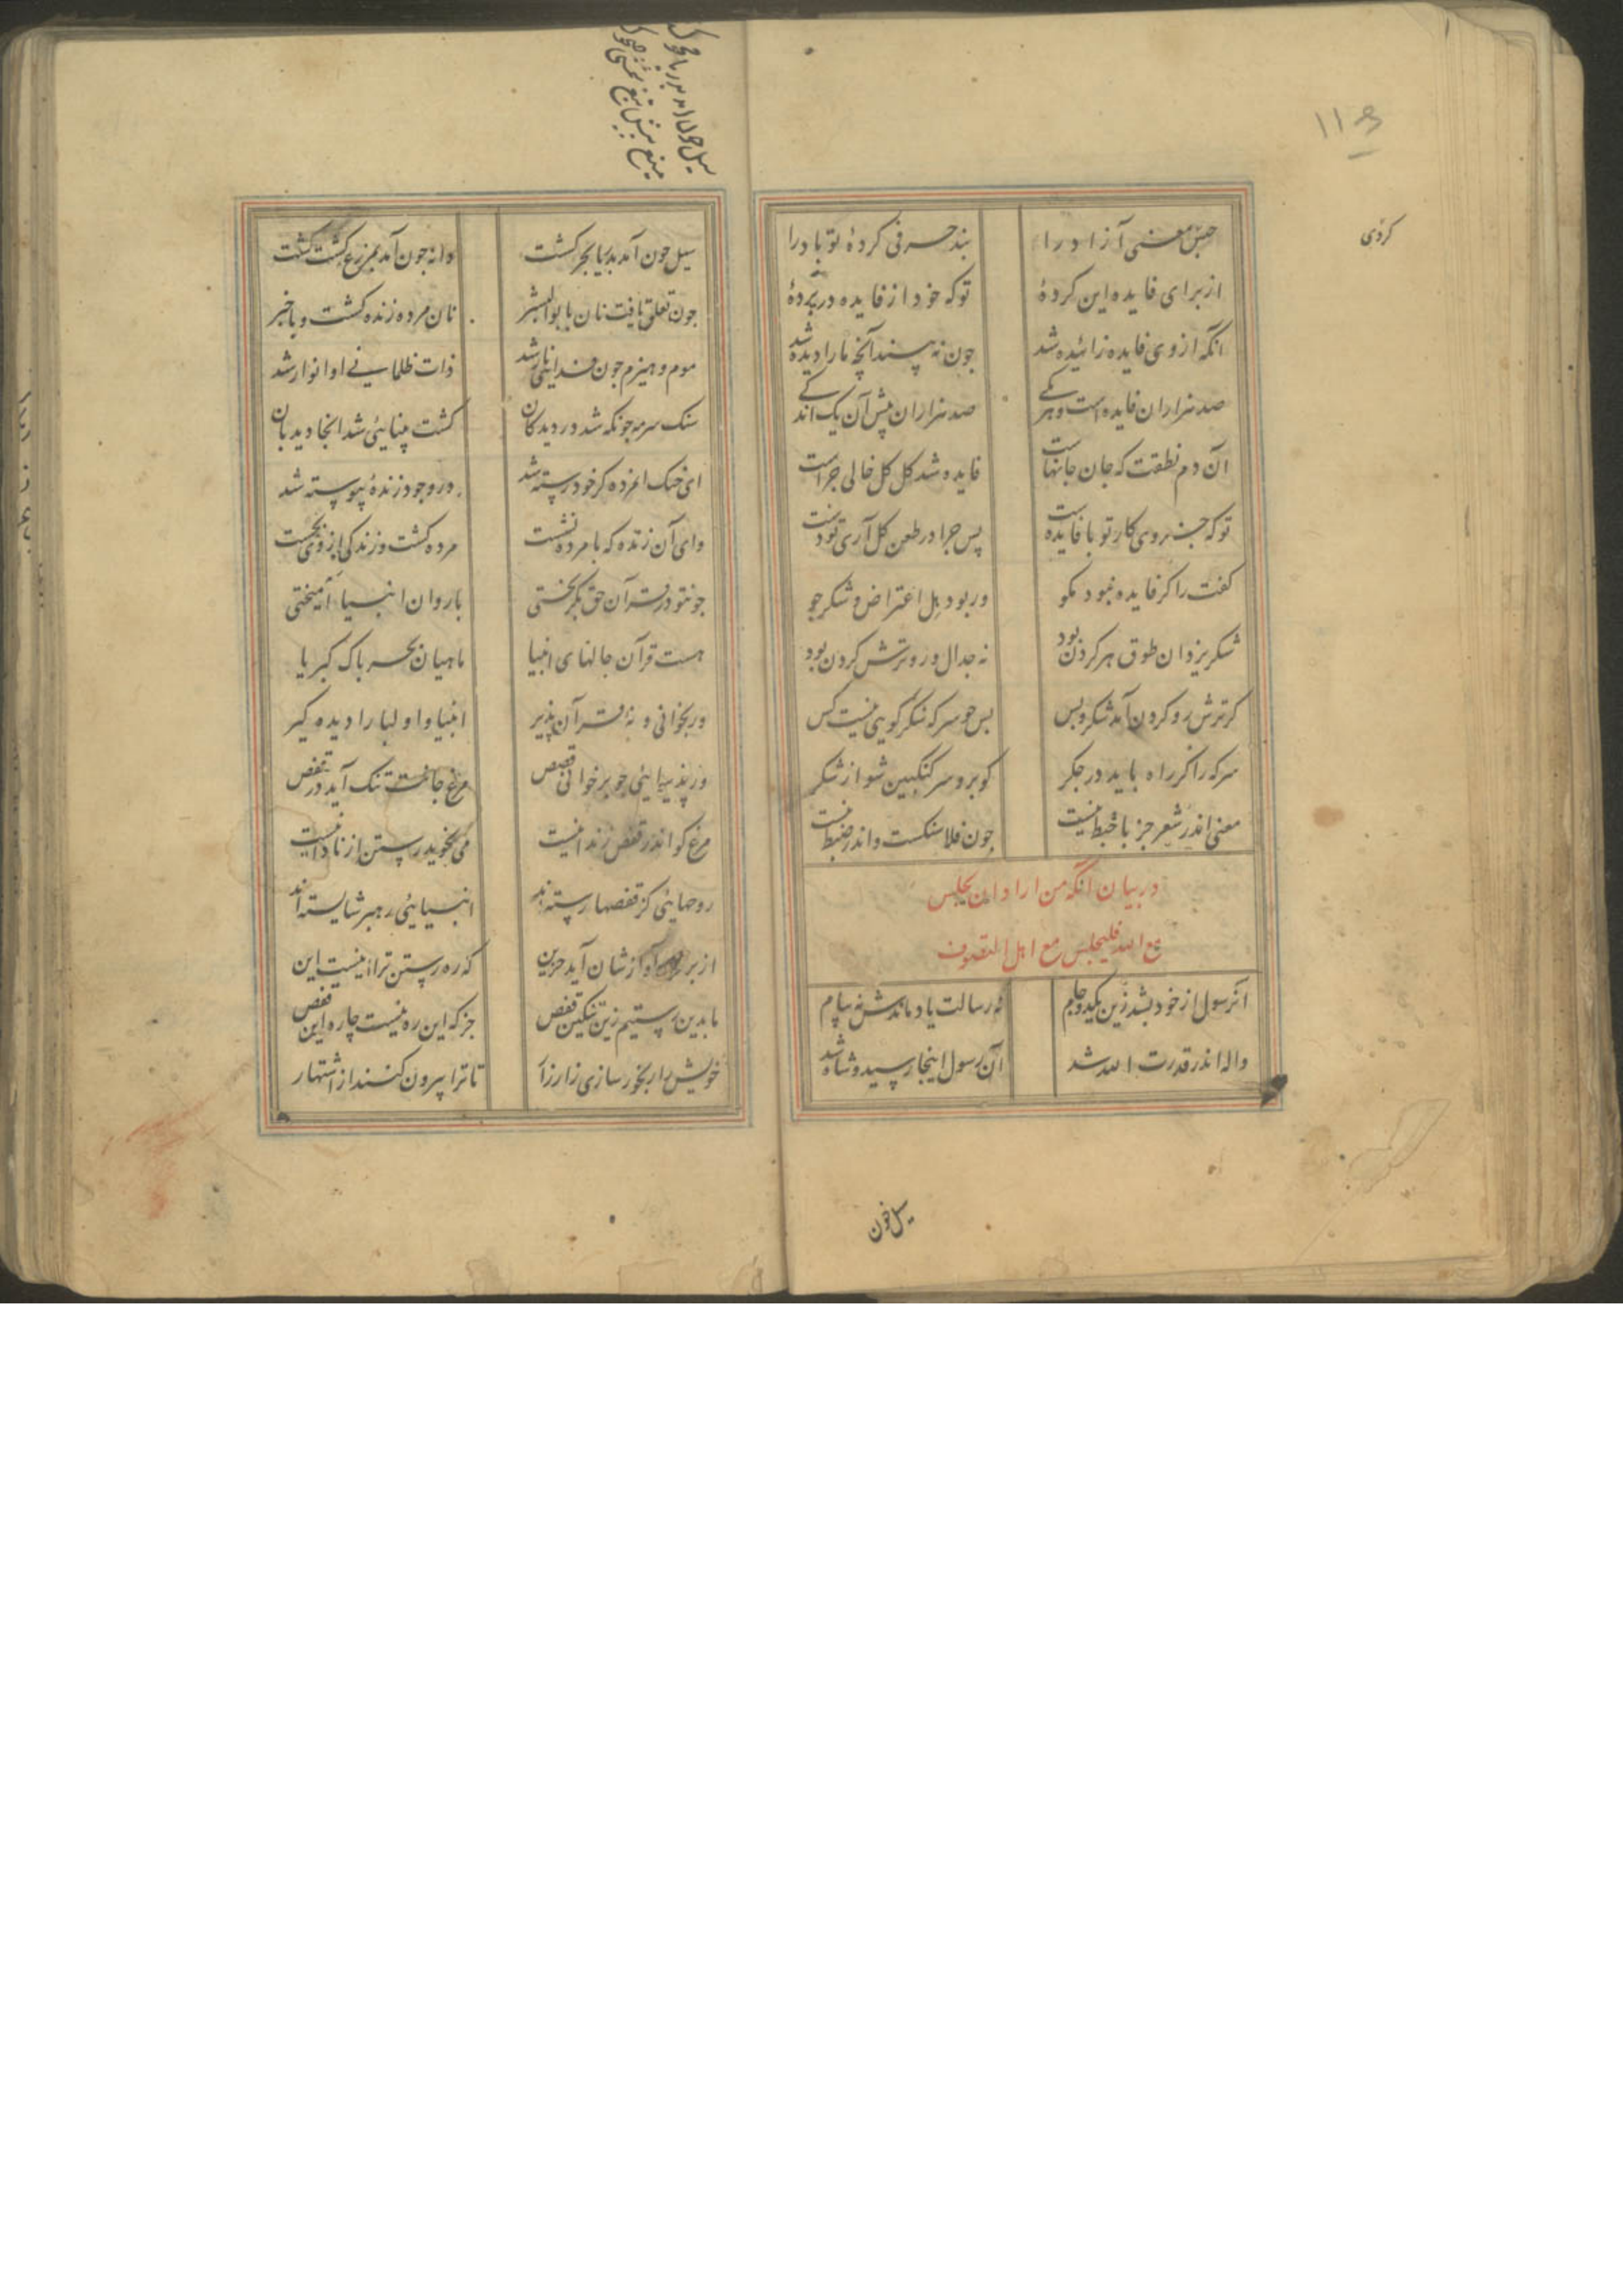 ۱۱۳
کردی
حبس معنی آزاد را بند حرفی کردهٔ تو باد را
از برای فایده این کردهٔ تو که خود از فایده در پردهٔ
انکه از وی فایده زائیده شد چون نه بیند آنچه ما را دیده شد
صد هزاران فایده است و هر یکی صد هزاران پیش آن یک اندکی
آن دم نطقت که جان جانهاست فایده شد کل کل خالی چراست
تو که جزوی کار تو با فایده است پس چرا در طعن کل آری تو دست
کفت را کر فایده نبود مکو ور بود بهل اعتراض و شکر جو
شکر یزدان طوق هر کردن بود نه جدال و رو ترش کردن بود
کر ترش رو کردن آمد شکر و بس بس جو سرکه شکر کویی نیست کس
سرکه را کر راه باید در جکر کو برو سرکنکبین شو از شکر
معنی اندر شعر جز با خبط نیست چون فلاسنکست و اندر ضبط نیست
در بیان انکه من اراد ان یجلس
مع الله فلیجلس مع اهل التصوف
آن رسول از خود بشد زین یکدو جام نه رسالت یاد ماندش نه پیام
واله اندر قدرت الله شد آن رسول اینجا رسید و شاه شد
سیل چون
سیل چون آمد بدریا بحر کشت دانه جون آمد بمزرع کشت کشت
جون تعلق یافت نان با بوالبشر نان مرده زنده کشت و باخبر
موم و هیزم جون فدای نار شد ذات ظلمانی او انوار شد
سنک سرمه جونکه شد در دیدکان کشت بینایی شد انجا دیدبان
ای خنک انمرده کز خود رسته شد در وجود زندهٔ پیوسته شد
وای آن زنده که با مرده نشست مرده کشت و زندکی از وی بجست
جونتو در قرآن حق بکریختی با روان انبیا آمیختی
هست قرآن حالهای انبیا ماهیان بحر پاک کبریا
ور بخوانی و نهٔ قرآن پذیر انبیا و اولیا را دیده کیر
ور پذیرایی جو بر خوانی قصص مرغ جانت تنک آید در قفص
مرغ کو اندر قفص زندانیست می نجوید رستن از نادانیست
روحهایی کز قفصها رسته اند انبیایی رهبر شایسته اند
از برون آوازشان آید حزین که ره رستن ترا اینست این
ما بدین رستیم زین تنکین قفص جز که این ره نیست چاره این قفص
خویش را رنجور سازی زار زار تا ترا بیرون کنند از اشتهار